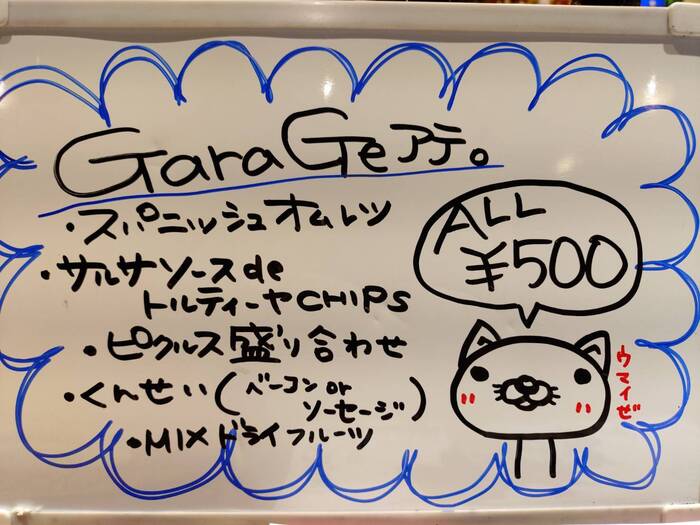 GaraGeアテ。
・スパニッシュオムレツ
・サルサソースde
トルティーヤCHIPS
・ピクルス盛り合わせ
・くんせい(ベーコンor
ソーセージ)
・MIXドライフルーツ
ALL
¥500
ウマイぜ